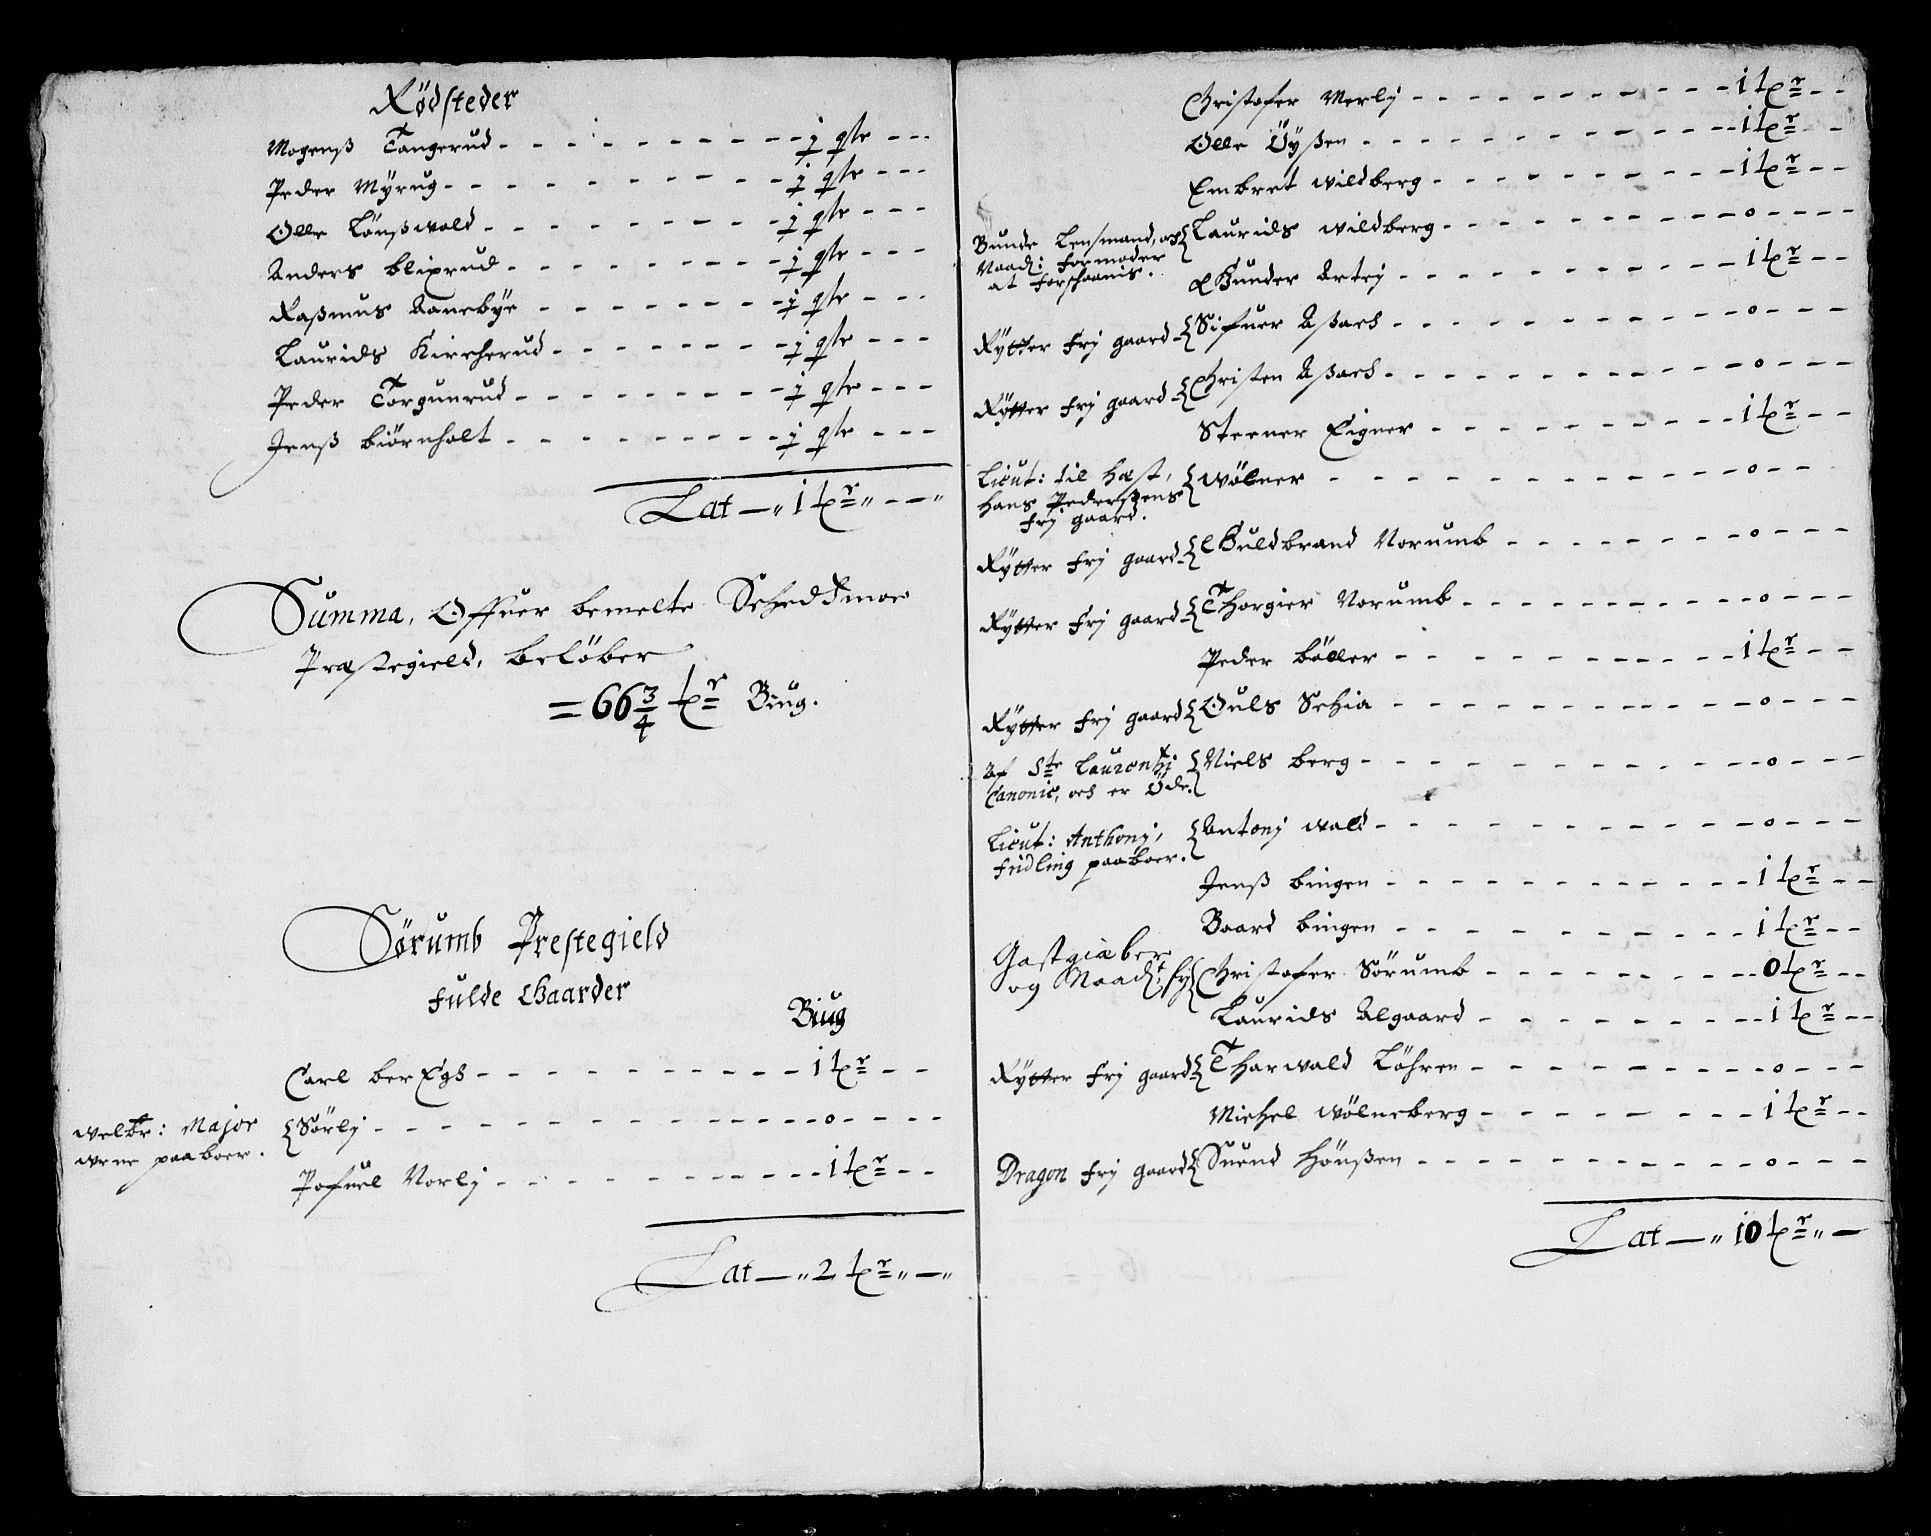 Rødsteder
Mogenß Tangerud - - - - - - - - - j qłr - - -
Peder Myrug - - - - - - - - - j qłr - - -
Olle Lönßwold - - - - - - - - j qłr - - -
Anders blixrud - - - - - - - - j qłr - - -
Raßmus Aanebÿe - - - - - - - j qłr - - -
Laurids Kircherud - - - - - - - j qłr - - -
Peder Torgunrud - - - - - - - - j qłr - - -
Jenß biörnholt - - - - - - - - - j qłr - - -
Lat — „ 1 tr „ — — „
Summa, Offuer bemelte Schedsmoe
Præstegield, belöber
= 66 3/4 tr Biug.
Sørumb Prestegield
fulde Gaarder
Biug
Carl berEgs - - - - - - - - - 1 tr - -
welbr: Major
wrne paaboer.
{Sörlj - - - - - - - - - - - o - - - -
Pofuel Norlj - - - - - - - - - 1 tr - -
Lat — „ 2 tr „ — „
Christofer Merlj - - - - - - - - - 1 tr - -
Olle Öyßen - - - - - - - - - 1 tr - -
Embret wildberg - - - - - - - - 1 tr - -
Bunde Lensmand, och
Naad: formoder
at forschaanis.
{Laurids wildberg - - - - - - - - o - - - -
Gunder Artej - - - - - - - - - 1 tr - -
Rytter frj gaard {Sifuer Aßach - - - - - - - - - o - - -
Rytter frj gaard {Christen Aßach - - - - - - - - - o - - -
Steener Eigner - - - - - - - - - 1 tr - -
Lieut: til hæst,
hans Pederßens
frj gaard.
{wölner - - - - - - - - - - o - -
Rytter frj gaard {Guldbrand Norumb - - - - - - - o - - -
Rytter frj gaard {Thorgier Norumb - - - - - - - - o - - -
Peder böller - - - - - - - - - 1 tr - -
Rytter frj gaard {Ouls Schia - - - - - - - - - o - - -
af Ste Laurentzj
Canonic, och er Öde.
{Niels berg - - - - - - - - - - o - - -
Lieut: Anthonj,
fridling paaboer.
{Antonj wald - - - - - - - - - o - - -
Jenß bingen - - - - - - - - - 1 tr - -
Baard bingen - - - - - - - - - 1 tr - -
Gastgiæber
og Naadt, frj
{Christofer Sörumb - - - - - - - 0 tr - -
Laurids Algaard - - - - - - - - 1 tr - -
Rytter frj gaard {Tharwald Löhren - - - - - - - - o - - -
Michel wölneberg - - - - - - - 1 tr - -
Dragon frj gaard {Suend hönßen - - - - - - - - - o - - -
Lat — „ 10 tr „ —